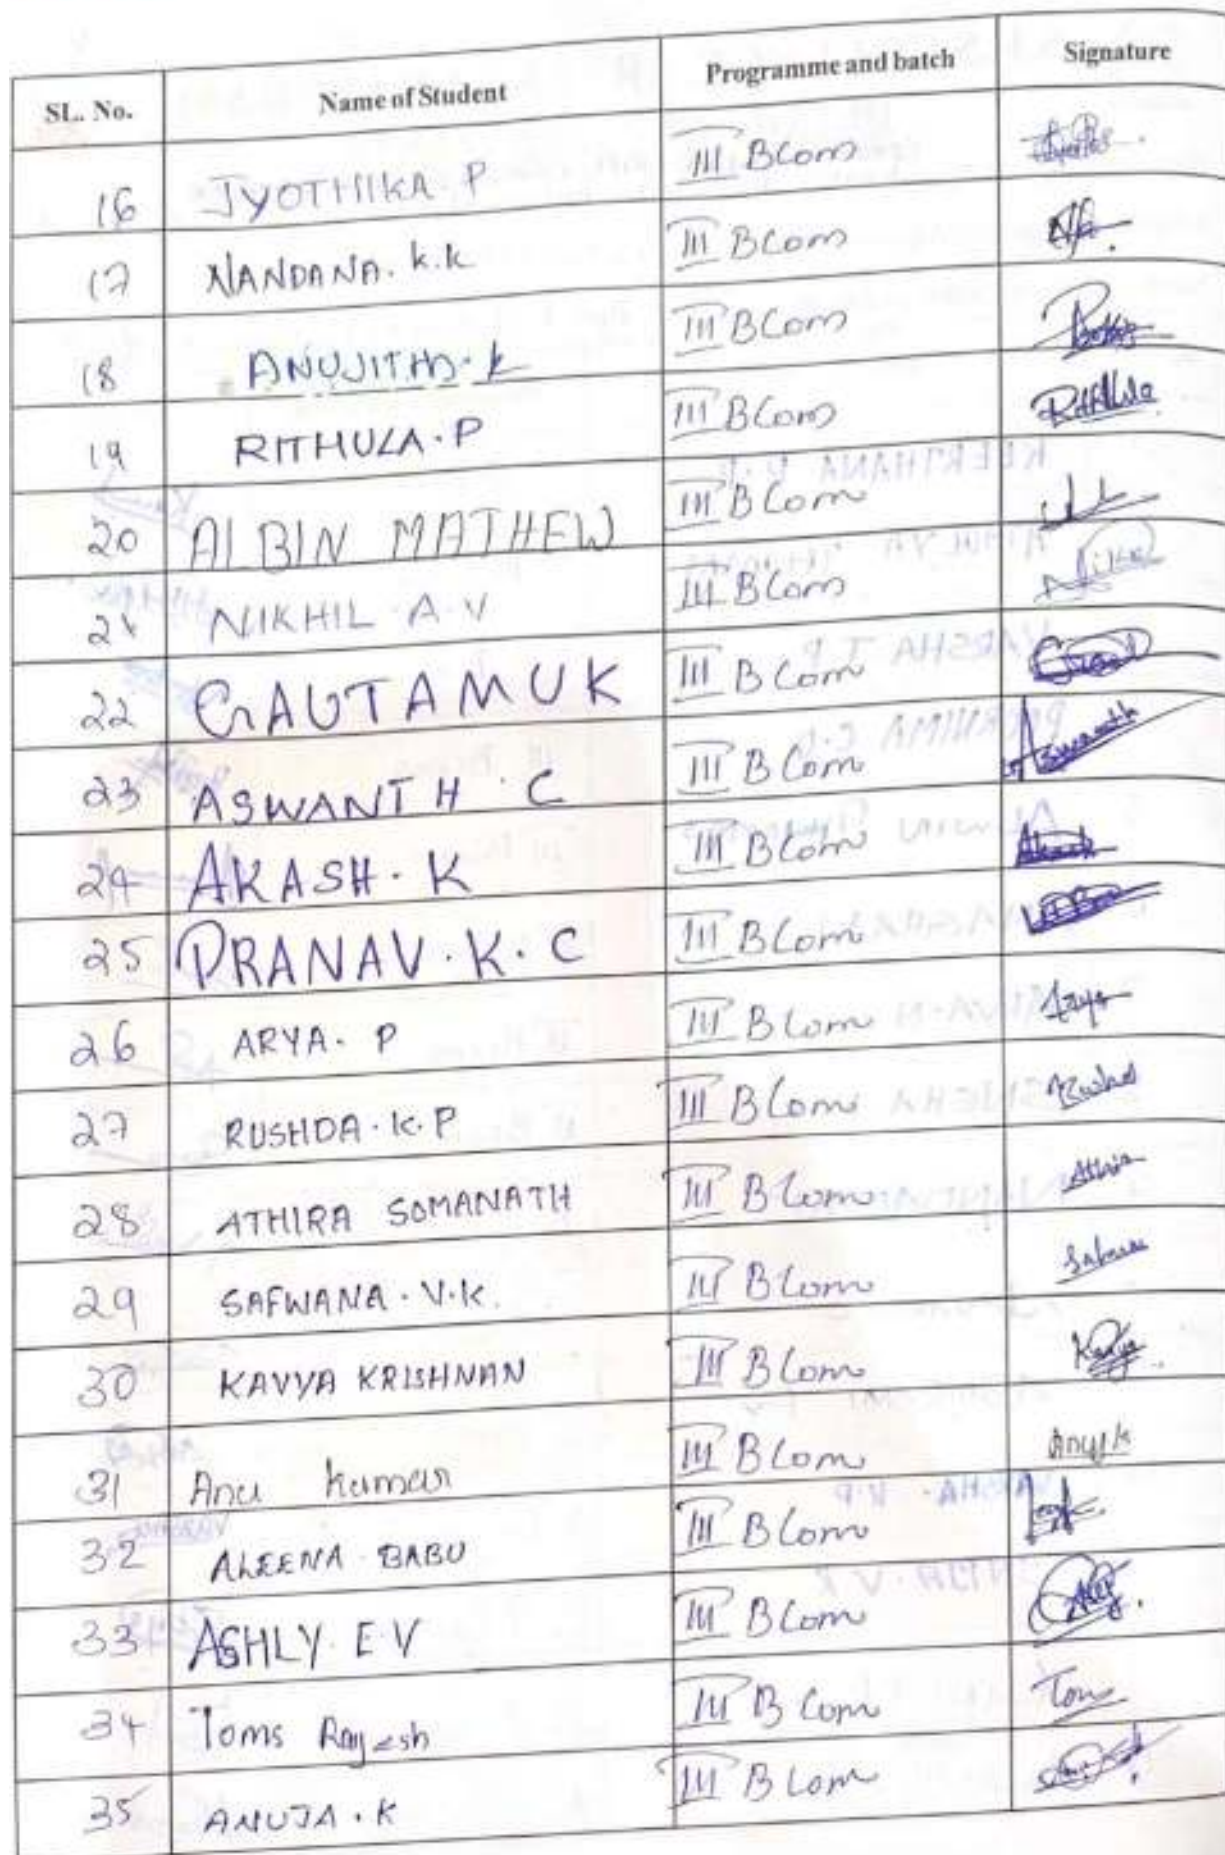 SL. No. Name of Student Programme and batch Signature
16 JYOTHIKA. P III BCom
17 NANDANA. K.K III BCom
18 ANUJITHA. K III BCom
19 RITHULA. P III BCom Rithula
20 ALBIN MATHEW III BCom
21 NIKHIL A.V III BCom Nikhil
22 GAUTAM U K III BCom
23 ASWANTH. C III BCom Aswanth
24 AKASH. K III BCom Akash
25 PRANAV. K. C III BCom
26 ARYA. P III BCom Arya
27 RUSHDA. K. P III BCom
28 ATHIRA SOMANATH III BCom Athira
29 SAFWANA. V.K. III BCom
30 KAVYA KRISHNAN III BCom Kavya
31 Anu Kumar III BCom
32 ALEENA BABU III BCom
33 ASHLY E V III BCom
34 Toms Rajesh III BCom Toms
35 ANUJA. K III BCom